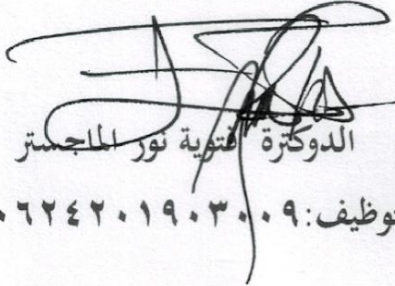 الدوكترة فتوية نور الماجستر
وظيف:٠٦٢٤٢٠١٩٠٣٠٠٩